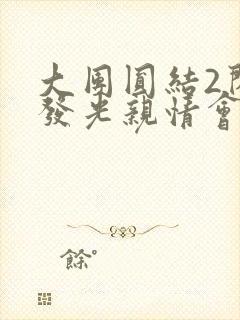 大團圓結2
發光親情會
餘。